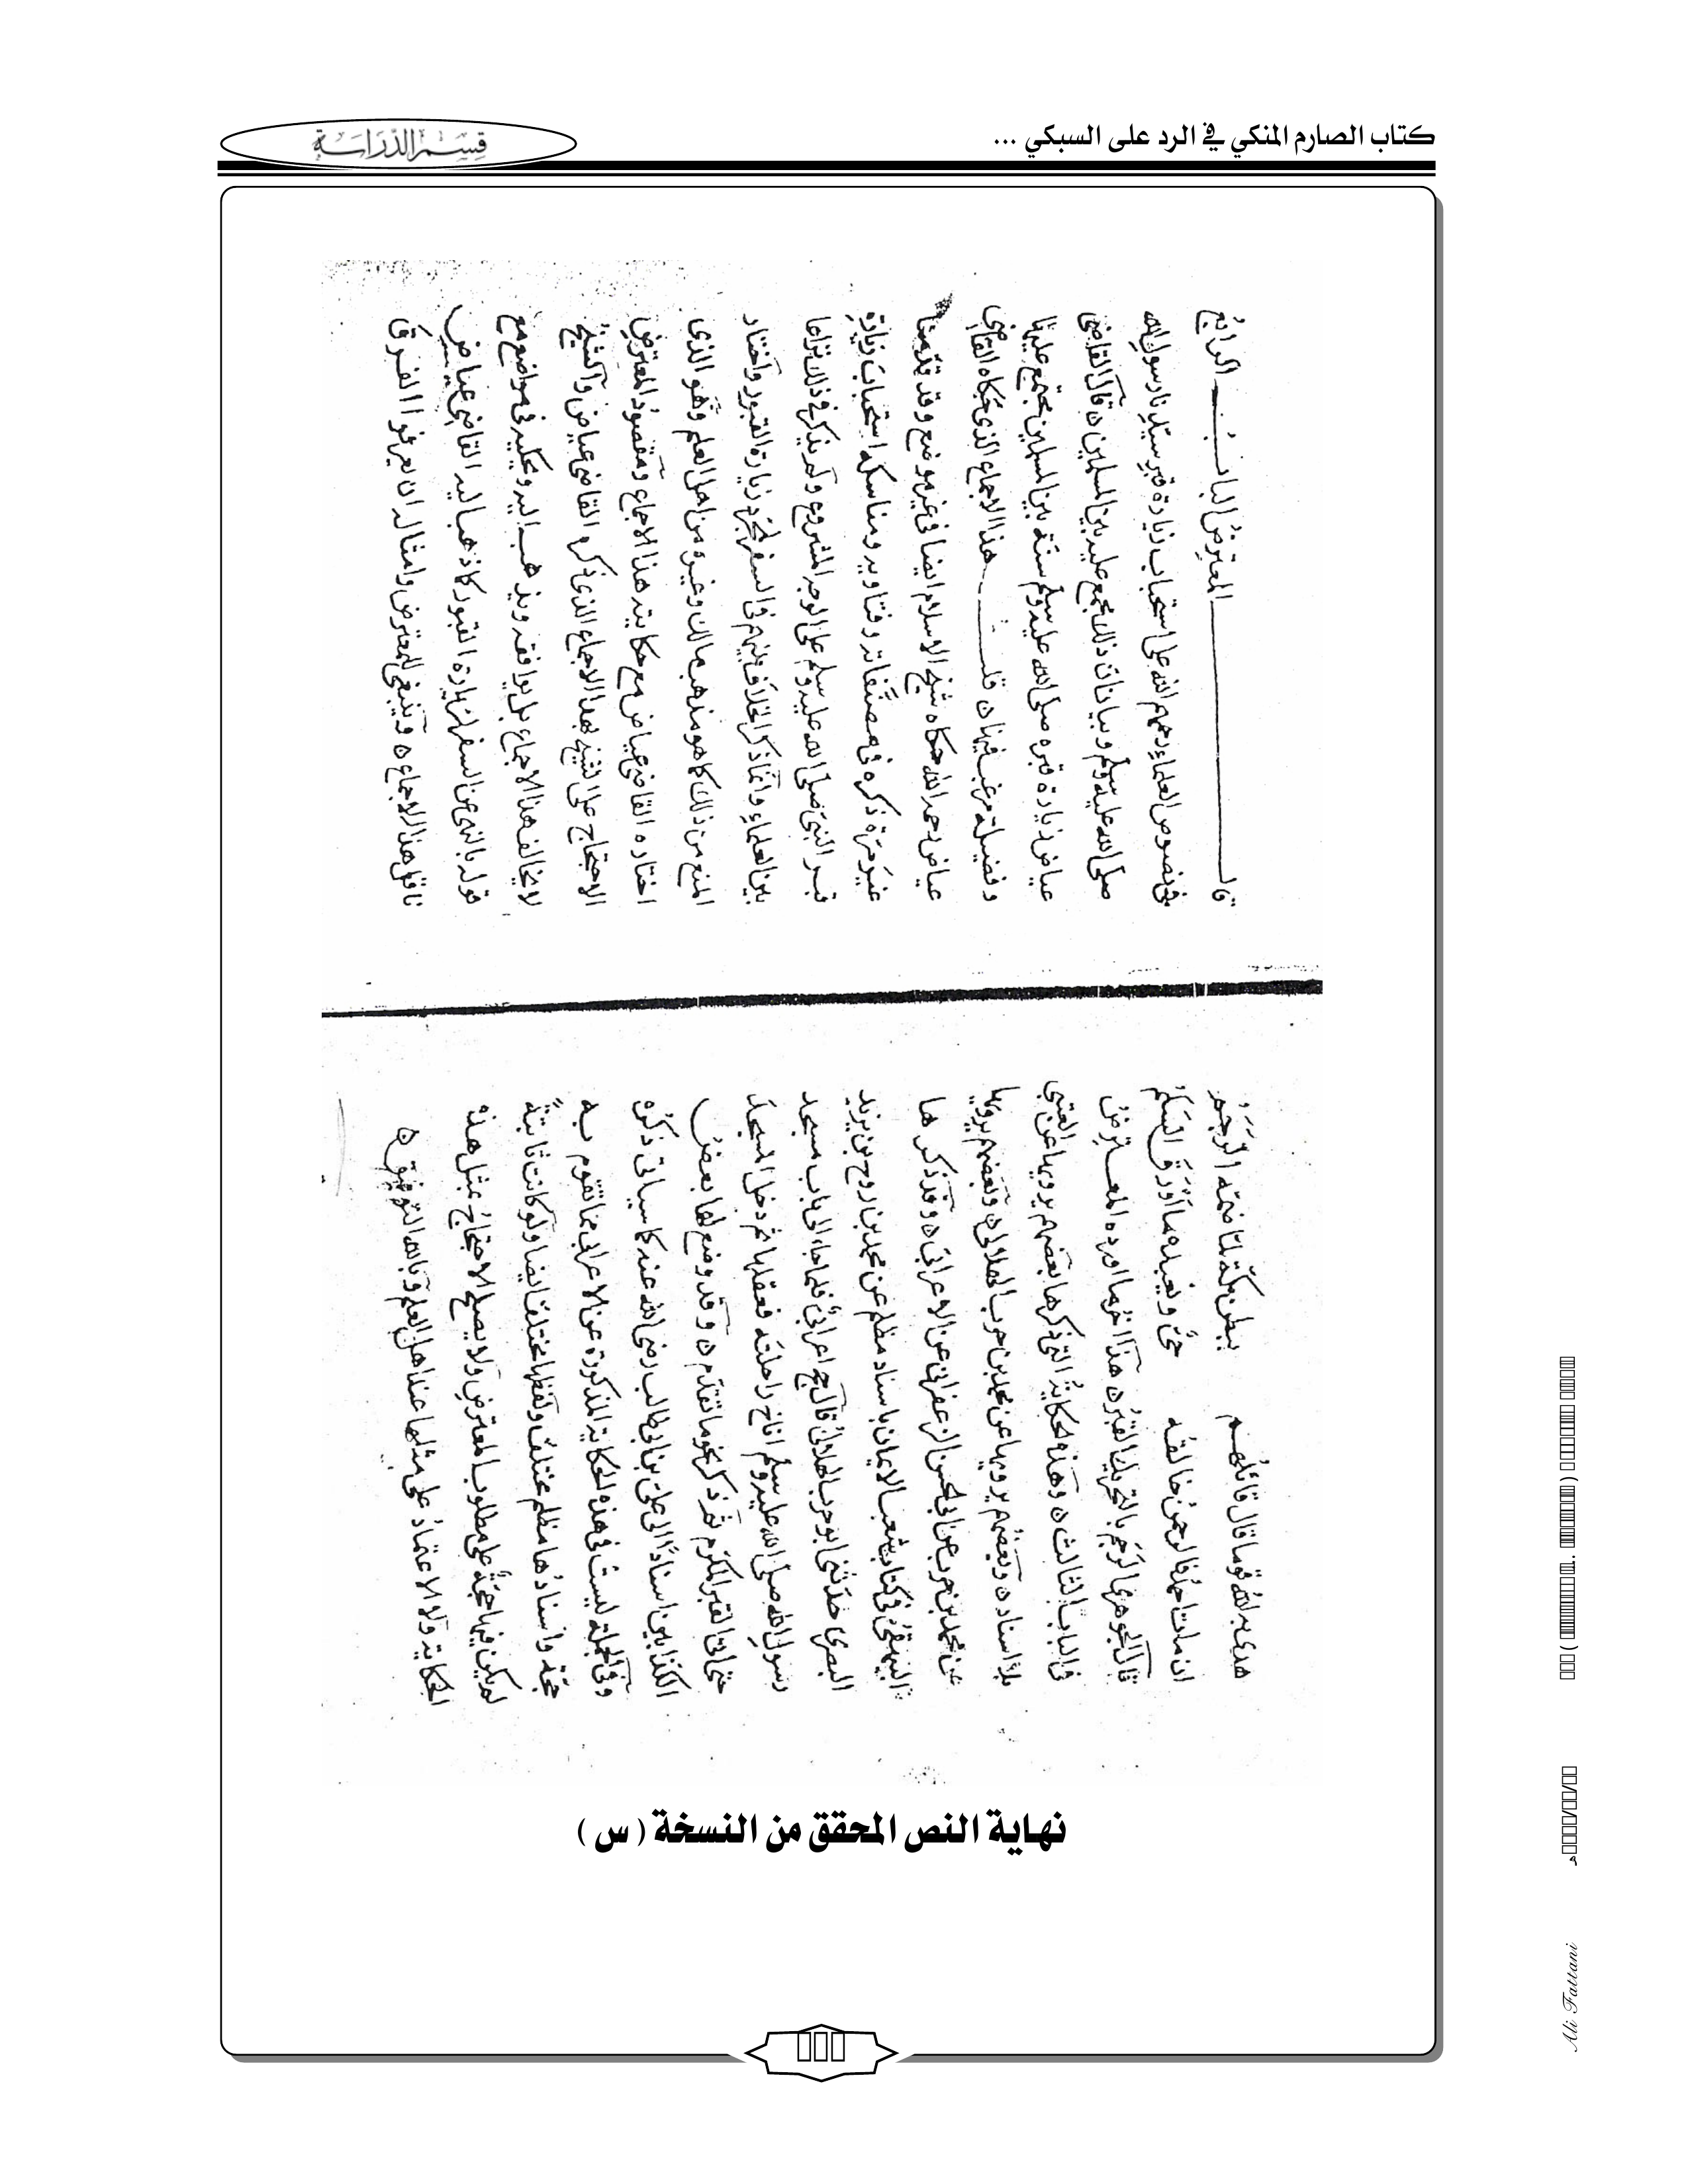 كتاب الصارم المنكي في الرد على السبكي ...
قسم الدراسة
هدى به الله قوما قال قائلهم ببطن مكة لما ضمه الرجم
ان مات احمد فالرحمن خالقه حي ونعبده ما اورق السلم
قال الجوهرى الرجم بالتحريك القبر ه هذا اخر ما اورده المعترض
فى الباب الثالث ه وهذه الحكاية التى ذكرها بعضهم يرويها عن العتبى
بلا اسناد ه وبعضهم يرويها عن محمد بن حرب الهلالى ه وبعضهم يرويها
عن محمد بن حرب عن ابى الحسن الزعفرانى عن الاعرابى ه وقد ذكرها
البيهقى فى كتاب شعب الايمان باسناد مظلم عن محمد بن روح بن يزيد
البصرى حدثنى ابو حرب الهلالى قال حج اعرابى فلما جاء الى باب مسجد
رسول الله صلى الله عليه وسلم اناخ راحلته فعقلها ثم دخل المسجد
حتى اتى القبر المكرم ثم ذكر نحو ما تقدم ه وقد وضع لها بعض
الكذابين اسنادا الى على بن ابى طالب رضى الله عنه كما سياتى ذكره
وفى الجملة ليست هذه الحكاية المذكورة عن الاعرابى مما تقوم به
حجة واسنادها مظلم مختلف ولفظها مختلف ايضا ولو كانت ثابتة
لم يكن فيها حجة على مطلوب المعترض ولا يصلح الاحتجاج بمثل هذه
الحكاية ولا الاعتماد على مثلها عند اهل العلم وبالله التوفيق ه
قال المعترض الباب الرابع
فى نصوص العلماء رحمهم الله على استحباب زيارة قبر سيدنا رسول الله
صلى الله عليه وسلم وبيان ان ذلك مجمع عليه بين المسلمين ه قال القاضى
عياض زيارة قبره صلى الله عليه وسلم سنة بين المسلمين مجتمع عليها
وفضيلة مرغب فيها ه قلت هذا الاجماع الذى حكاه القاضى
عياض رحمه الله حكاه شيخ الاسلام ايضا فى غير موضع وقد قدمنا
غير مرة ذكره فى مصنفاته وفتاويه ومناسكه استحباب زيارة
قبر النبى صلى الله عليه وسلم على الوجه المشروع ولم يذكر فى ذلك نزاعا
بين العلماء وانما ذكر الخلاف بينهم فى السفر لمجرد زيارة القبور واختار
المنع من ذلك كما هو مذهب مالك وغيره من اهل العلم وهو الذى
اختاره القاضى عياض مع حكايته هذا الاجماع ومقصود المعترض
الاحتجاج على الشيخ بهذا الاجماع الذى ذكره القاضى عياض والشيخ
لا يخالف هذا الاجماع بل يوافقه ويذهب اليه ويحكيه فى مواضع مع
قوله بالنهى عن السفر لزيارة القبور كما ذهب اليه القاضى عياض
ناقل هذا الاجماع ه وينبغى للمعترض وامثاله ان يعرفوا الفرق
نهاية النص المحقق من النسخة ( س )
Ali Fattani